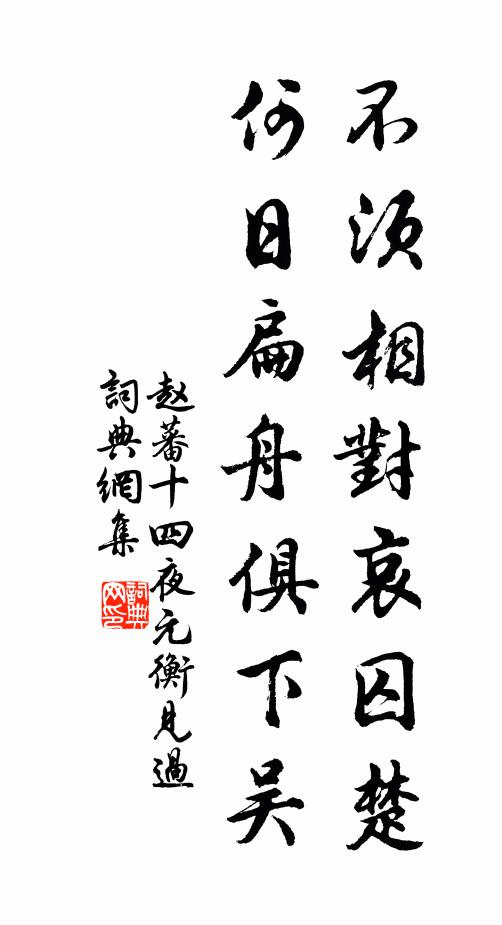 不須相對哀囚楚
何日扁舟俱下吴
赵蕃十四夜元衡見過
詞典網集
詞典网印